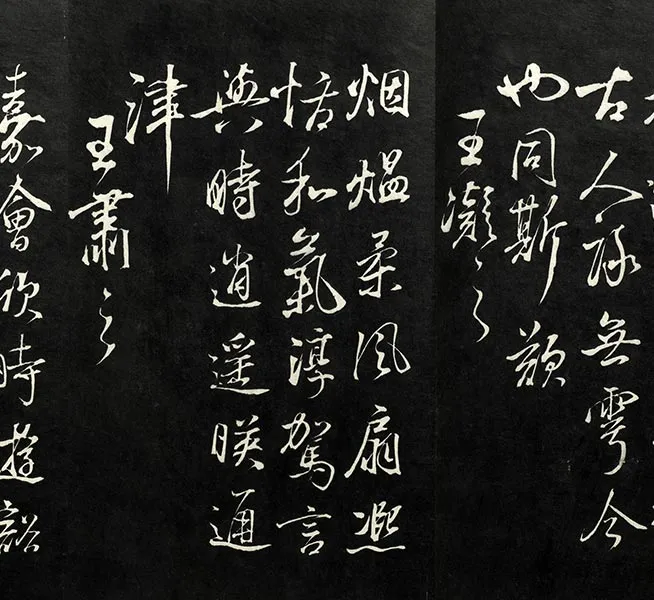 古人詠無雩今
也同斯歎
王凝之
烟熅柔風扇熈
恬和氣淳駕言
興時逍遥暎通
津
王肅之
嘉會欣時遊豁